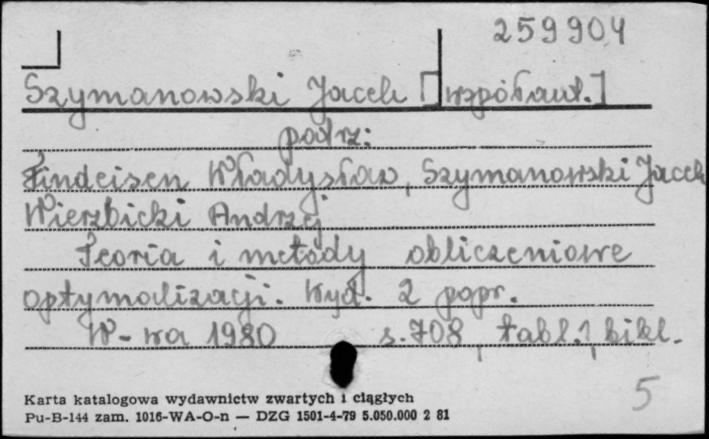 259904
Szymanowski Jacek [współaut.]
patrz:
Findeisen Władysław, Szymanowski Jacek
Wierzbicki Andrzej
Teoria i metody obliczeniowe
optymalizacji. Wyd. 2 popr.
W-wa 1980 s. 708, tabl. 1, bibl.
5
Karta katalogowa wydawnictw zwartych i ciągłych
Pu-B-144 zam. 1016-WA-O-n — DZG 1501-4-79 5.050.000 2 81